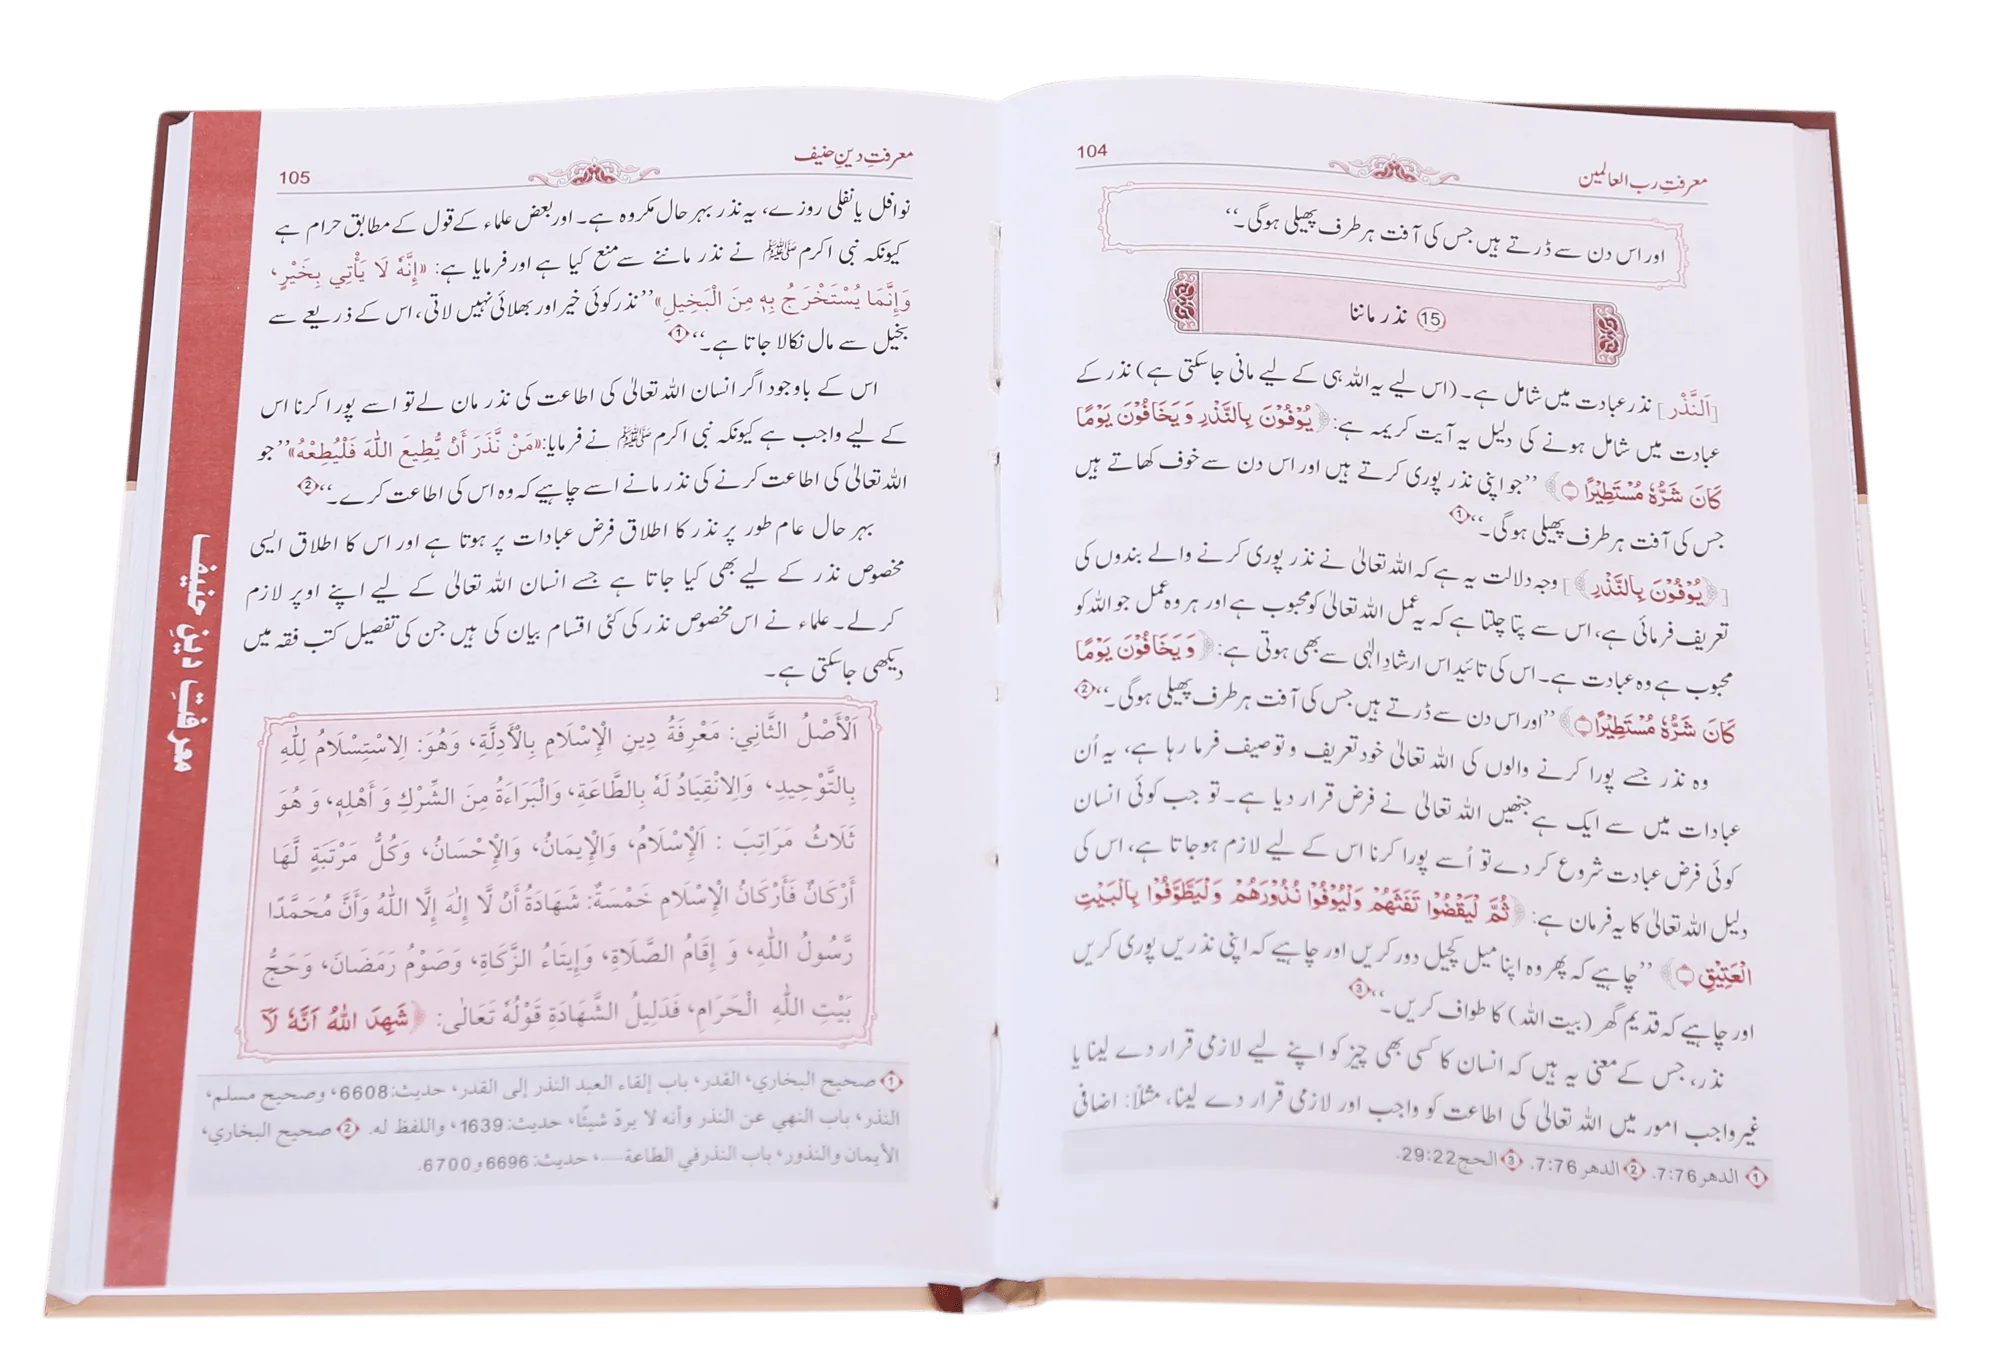 104
معرفتِ رب العالمین
اور اس دن سے ڈرتے ہیں جس کی آفت ہر طرف پھیلی ہوگی۔‘‘
15 نذر ماننا
[اَلنَّذْر] نذر عبادت میں شامل ہے۔ (اس لیے یہ اللہ ہی کے لیے مانی جاسکتی ہے) نذر کے
عبادت میں شامل ہونے کی دلیل یہ آیت کریمہ ہے: ﴿يُوْفُوْنَ بِالنَّذْرِ وَيَخَافُوْنَ يَوْمًا
كَانَ شَرُّهٗ مُسْتَطِيْرًا﴾ ’’جو اپنی نذر پوری کرتے ہیں اور اس دن سے خوف کھاتے ہیں
جس کی آفت ہر طرف پھیلی ہوگی۔‘‘ 1
[﴿يُوْفُوْنَ بِالنَّذْرِ﴾] وجہ دلالت یہ ہے کہ اللہ تعالیٰ نے نذر پوری کرنے والے بندوں کی
تعریف فرمائی ہے، اس سے پتا چلتا ہے کہ یہ عمل اللہ تعالیٰ کو محبوب ہے اور ہر وہ عمل جو اللہ کو
محبوب ہے وہ عبادت ہے۔ اس کی تائید اس ارشادِ الٰہی سے بھی ہوتی ہے: ﴿وَيَخَافُوْنَ يَوْمًا
كَانَ شَرُّهٗ مُسْتَطِيْرًا﴾ ’’اور اس دن سے ڈرتے ہیں جس کی آفت ہر طرف پھیلی ہوگی۔‘‘ 2
وہ نذر جسے پورا کرنے والوں کی اللہ تعالیٰ خود تعریف و توصیف فرما رہا ہے، یہ اُن
عبادات میں سے ایک ہے جنھیں اللہ تعالیٰ نے فرض قرار دیا ہے۔ تو جب کوئی انسان
کوئی فرض عبادت شروع کر دے تو اُسے پورا کرنا اس کے لیے لازم ہوجاتا ہے، اس کی
دلیل اللہ تعالیٰ کا یہ فرمان ہے: ﴿ثُمَّ لْيَقْضُوْا تَفَثَهُمْ وَلْيُوْفُوْا نُذُوْرَهُمْ وَلْيَطَّوَّفُوْا بِالْبَيْتِ
الْعَتِيْقِ﴾ ’’چاہیے کہ پھر وہ اپنا میل کچیل دور کریں اور چاہیے کہ اپنی نذریں پوری کریں
اور چاہیے کہ قدیم گھر (بیت اللہ) کا طواف کریں۔‘‘ 3
نذر، جس کے معنی یہ ہیں کہ انسان کا کسی بھی چیز کو اپنے لیے لازمی قرار دے لینا یا
غیر واجب امور میں اللہ تعالیٰ کی اطاعت کو واجب اور لازمی قرار دے لینا، مثلاً: اضافی
1 الدهر 7:76. 2 الدهر 7:76. 3 الحج 29:22.
معرفتِ دینِ حنیف
105
نوافل یا نفلی روزے، یہ نذر بہر حال مکروہ ہے۔ اور بعض علماء کے قول کے مطابق حرام ہے
کیونکہ نبی اکرم ﷺ نے نذر ماننے سے منع کیا ہے اور فرمایا ہے: «إِنَّهٗ لَا يَأْتِي بِخَيْرٍ،
وَإِنَّمَا يُسْتَخْرَجُ بِهٖ مِنَ الْبَخِيلِ» ’’نذر کوئی خیر اور بھلائی نہیں لاتی، اس کے ذریعے سے
بخیل سے مال نکالا جاتا ہے۔‘‘ 1
اس کے باوجود اگر انسان اللہ تعالیٰ کی اطاعت کی نذر مان لے تو اسے پورا کرنا اس
کے لیے واجب ہے کیونکہ نبی اکرم ﷺ نے فرمایا: «مَنْ نَّذَرَ أَنْ يُّطِيعَ اللّٰهَ فَلْيُطِعْهُ» ’’جو
اللہ تعالیٰ کی اطاعت کرنے کی نذر مانے اسے چاہیے کہ وہ اس کی اطاعت کرے۔‘‘ 2
بہر حال عام طور پر نذر کا اطلاق فرض عبادات پر ہوتا ہے اور اس کا اطلاق ایسی
مخصوص نذر کے لیے بھی کیا جاتا ہے جسے انسان اللہ تعالیٰ کے لیے اپنے اوپر لازم
کر لے۔ علماء نے اس مخصوص نذر کی کئی اقسام بیان کی ہیں جن کی تفصیل کتب فقہ میں
دیکھی جاسکتی ہے۔
اَلْأَصْلُ الثَّانِي: مَعْرِفَةُ دِينِ الْإِسْلَامِ بِالْأَدِلَّةِ، وَهُوَ: الِاسْتِسْلَامُ لِلّٰهِ
بِالتَّوْحِيدِ، وَالِانْقِيَادُ لَهٗ بِالطَّاعَةِ، وَالْبَرَاءَةُ مِنَ الشِّرْكِ وَأَهْلِهٖ، وَهُوَ
ثَلَاثُ مَرَاتِبَ: اَلْإِسْلَامُ، وَالْإِيمَانُ، وَالْإِحْسَانُ، وَكُلُّ مَرْتَبَةٍ لَّهَا
أَرْكَانٌ فَأَرْكَانُ الْإِسْلَامِ خَمْسَةٌ: شَهَادَةُ أَنْ لَّا إِلٰهَ إِلَّا اللّٰهُ وَأَنَّ مُحَمَّدًا
رَّسُولُ اللّٰهِ، وَإِقَامُ الصَّلَاةِ، وَإِيتَاءُ الزَّكَاةِ، وَصَوْمُ رَمَضَانَ، وَحَجُّ
بَيْتِ اللّٰهِ الْحَرَامِ، فَدَلِيلُ الشَّهَادَةِ قَوْلُهٗ تَعَالٰى: ﴿شَهِدَ اللّٰهُ اَنَّهٗ لَآ
1 صحيح البخاري، القدر، باب إلقاء العبد النذر إلى القدر، حديث: 6608، وصحيح مسلم،
النذر، باب النهي عن النذر وأنه لا يردّ شيئًا، حديث: 1639، واللفظ له. 2 صحيح البخاري،
الأيمان والنذور، باب النذر في الطاعة....، حديث: 6696 و 6700.
معرفتِ دینِ حنیف